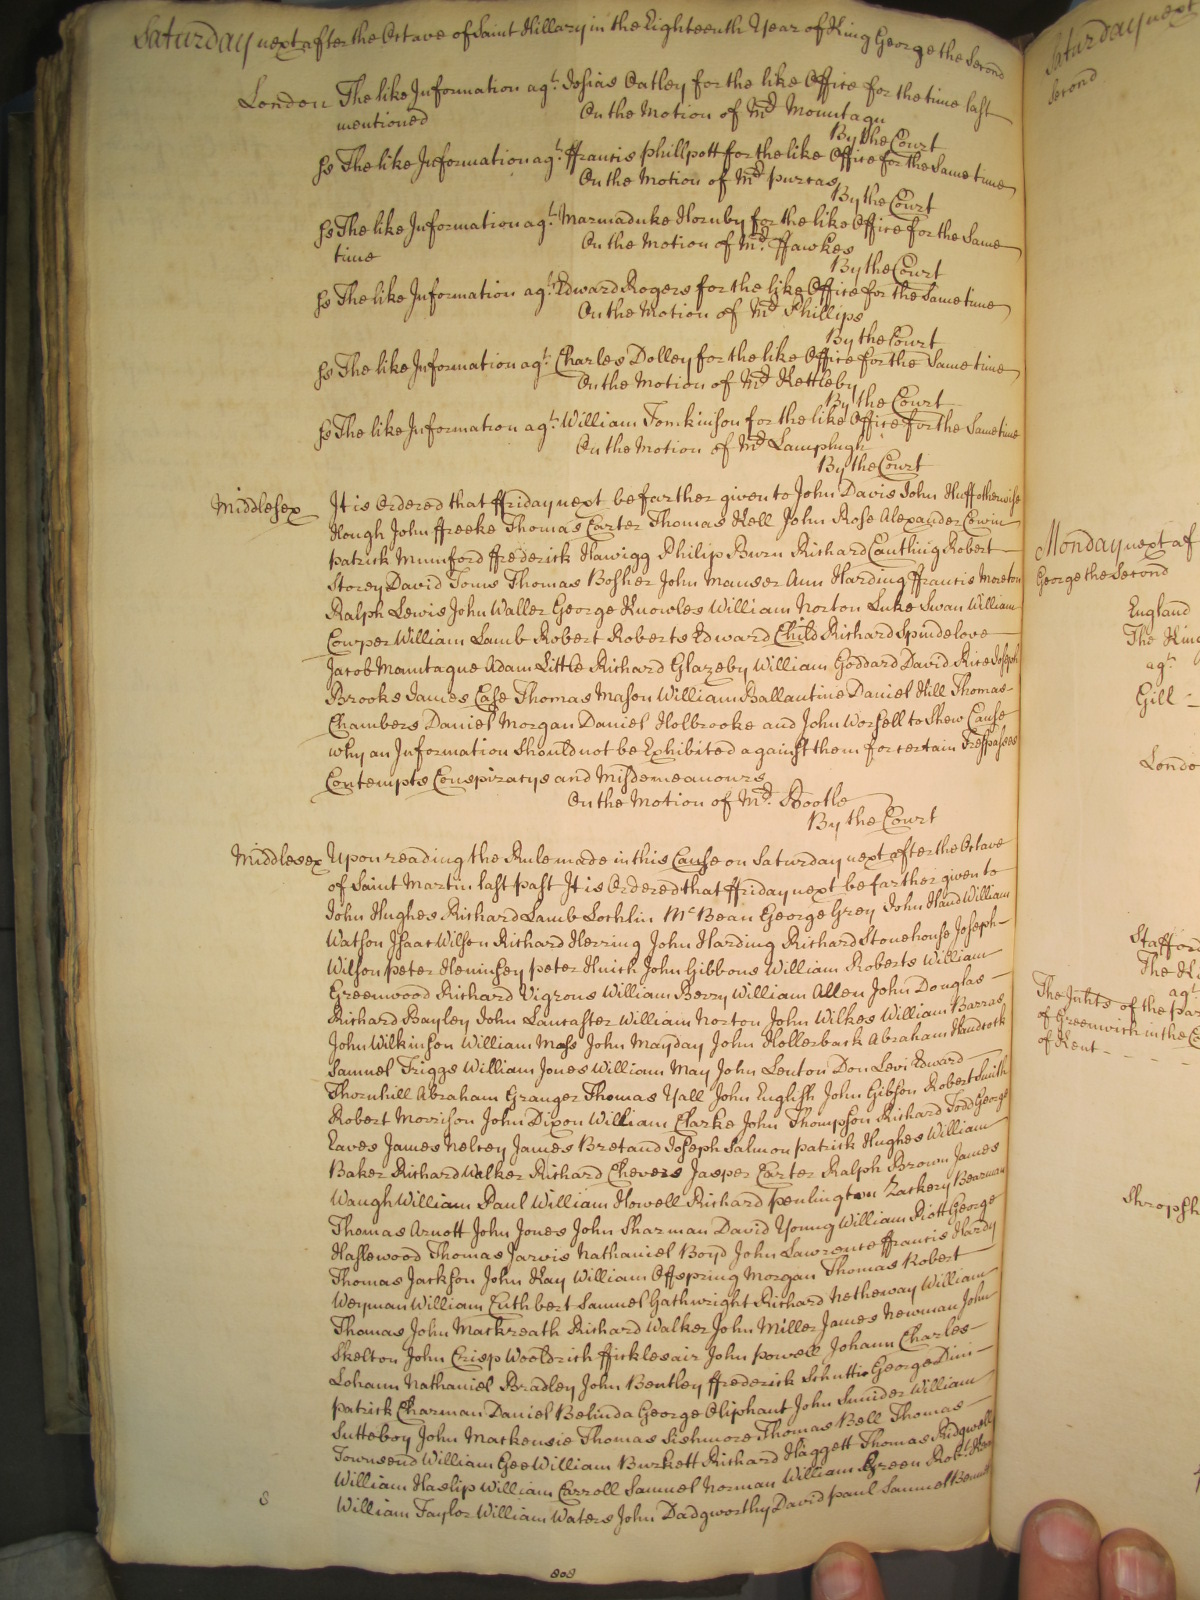 Saturday next after the Octave of Saint Hillary in the Eighteenth Year of King George the Second
London The like Information agt. Josias Oatley for the like Office for the time last
mentioned On the Motion of Mr Mountagu
By the Court
ss The like Information agt. ffrancis Phillpott for the like Office for the Same time
On the Motion of Mr Purcas
By the Court
ss The like Information agt. Marmaduke Hornby for the like Office for the Same
time On the Motion of Mr. ffawkes
By the Court
ss The like Information agt. Edward Rogers for the like Office for the Same time
On the Motion of Mr Phillips
By the Court
ss The like Information agt. Charles Dolley for the like Office for the Same time
On the Motion of Mr Kettleby
By the Court
ss The like Information agt. William Tomkinson for the like Office for the Same time
On the Motion of Mr Lamplugh
By the Court
Middlesex It is Ordered that ffriday next be farther given to John Davis John Huff otherwise
Hough John ffreeke Thomas Carter Thomas Kell John Rose Alexander Cowin
Patrick Mumford ffrederick Hawigg Philip Burn Richard Canthing Robert
Storey David Toms Thomas Bosher John Manser Ann Harding ffrancis Moreton
Ralph Lewis John Waller George Knowles William Norton Luke Swan William
Cowper William Lamb Robert Roberts Edward Child Richard Spindelove
Jacob Mamtague Adam Little Richard Glazeby William Goddard David Rice Joseph
Brooks James Case Thomas Mason William Ballantine Daniel Hill Thomas
Chambers Daniel Morgan Daniel Holbrooke and John Worsell to Shew Cause
why an Information Should not be Exhibited against them for certain Trespasses
Contempts Conspiracys and Misdemeanours
On the Motion of Mr. Bootle
By the Court
Middlesex Upon reading the Rule made in this Cause on Saturday next after the Octave
of Saint Martin last past It is Ordered that ffriday next be farther given to
John Hughes Richard Lamb Lochlin McBean George Grey John Hand William
Watson Isaac Wilson Richard Herring John Harding Richard Stonehouse Joseph
Wilson Peter Heminsey Peter Huish John Gibbons William Roberts William
Greenwood Richard Vigrous William Berry William Allen John Douglas
Richard Bayley John Lancaster William Norton John Wilkes William Barras
John Wilkinson William Moss John Mayday John Hollerback Abraham Handcock
Samuel Triggs William Jones William May John Lenton Don Levi Edward
Thornhill Abraham Granger Thomas Yall John English John Gibson Robert Smith
Robert Morrison John Dixon William Clarke John Thompson Richard Todd George
Eaves James Nelvey James Bretand Joseph Salmon Patrick Hughes William
Baker Richard Walker Richard Chevers Jasper Carter Ralph Brown James
Waugh William Paul William Howell Richard Penlington Zackery Bearman
Thomas Arnott John Jones John Sharman David Young William Riott George
Haslewood Thomas Jarvis Nathaniel Boyd John Lawrence ffrancis Hardy
Thomas Jackson John Kay William Offspring Morgan Thomas Robert
Weyman William Cuthbert Samuel Gathwright Richard Netheway William
Thomas John Mackreath Richard Walker John Miller James Newman John
Skelton John Crisp Wooldrich fficklesair John Powell Johann Charles
Lohann Nathaniel Bradley John Bentley ffrederick Schuttis George Dini
Patrick Charman Daniel Belinda George Oliphant John Snuider William
Sutteboy John Mackensie Thomas Sishmore Thomas Bell Thomas
Townsend William Gee William Burkett Richard Haggett Thomas Ridgwell
William Haslip William Carroll Samuel Norman William Green Robt.
William Taylor William Waters John Dadgworthy David Paul Samuel Bennett
Saturday next
Second
Monday next af
George the Second
England
The Kin
agt.
Gill
Londo
Stafford
The Ki
agt
The Inhts of the Par
of Greenwich in the Co
of Kent
Shropsh